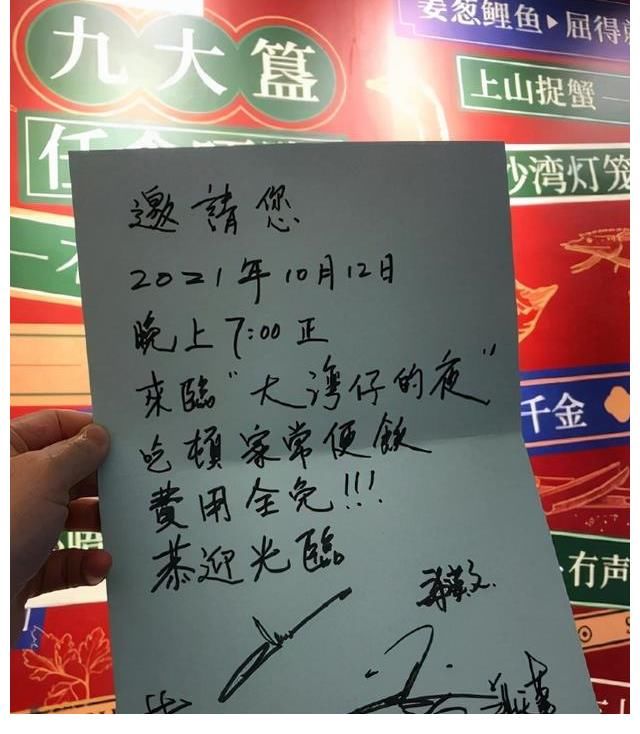 九大簋
姜葱鲤鱼▶屈得
上山捉蟹一
沙湾灯笼
千金
有声
邀請您
2021年10月12日
晚上7:00正
來臨"大灣仔的夜"
吃頓家常便飯
費用全免!!!
恭迎光臨